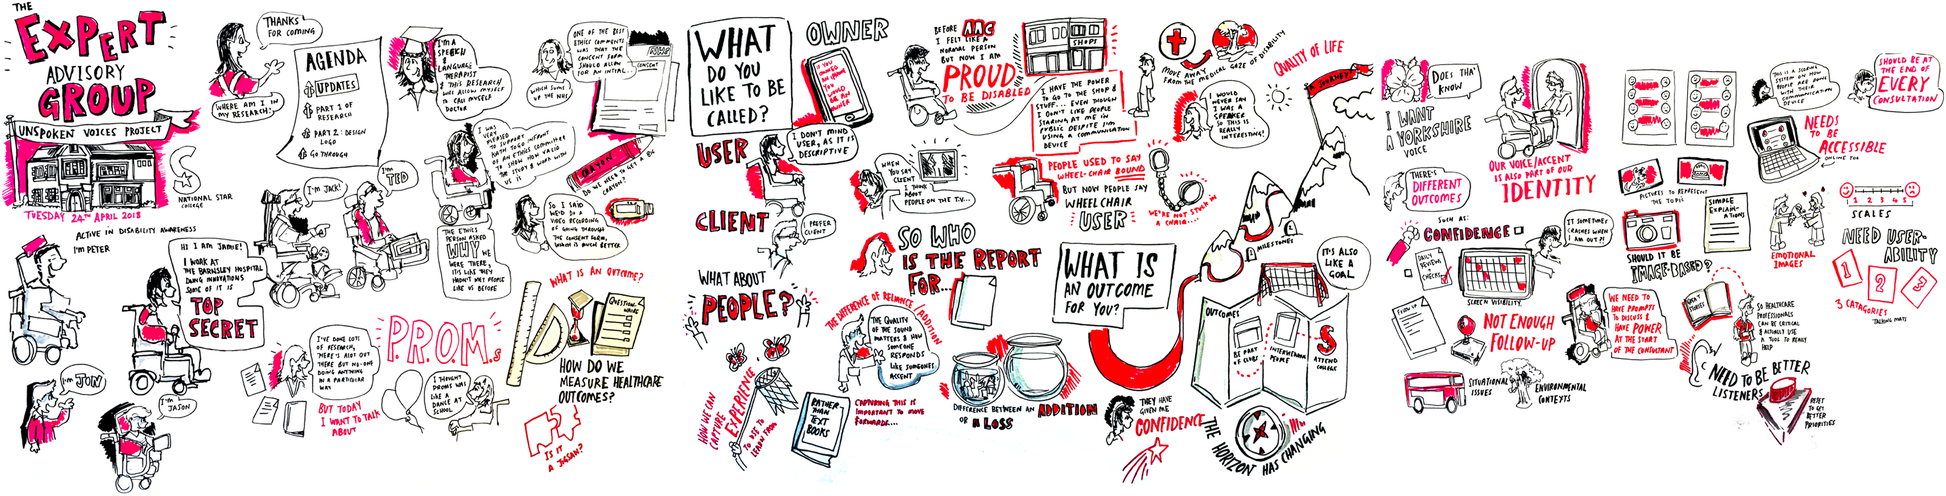 THE
EXPERT
ADVISORY
GROUP
UNSPOKEN VOICES PROJECT
TUESDAY 24TH APRIL 2018
NATIONAL STAR
COLLEGE
THANKS
FOR COMING
WHERE AM I IN
MY RESEARCH!
AGENDA
UPDATES
PART 1 OF
RESEARCH
PART 2: DESIGN
LOGO
GO THROUGH
ACTIVE IN DISABILITY AWARENESS
I'M PETER
HI I AM JAMIE!
I WORK AT
THE BARNSLEY HOSPITAL
DOING INNOVATIONS
SOME OF IT IS
TOP
SECRET
I'M JON
I'M
JASON
I'M JACK!
I'M
TED
I'M A
SPEECH
&
LANGUAGE
THERAPIST
& THIS RESEARCH
WILL ALLOW MYSELF
TO CALL MYSELF
DOCTOR
I WAS
VERY
PLEASED
TO SUPPORT
KATH TO GO INFRONT
OF AN ETHICS COMMITTEE
TO SHOW HOW VALID
THE STUDY & WORK WITH
US IS
THE ETHICS
PERSON ASKED
WHY WE
WERE THERE,
IT'S LIKE THEY
HADN'T MET PEOPLE
LIKE US BEFORE
ONE OF THE BEST
ETHICS COMMENTS
WAS THAT THE
CONSENT FORM
SHOULD ALLOW
FOR AN INITIAL...
WHICH SUMS
UP THE NHS
NHS
CONSENT
CRAYON
DO WE NEED TO GET A BIG
CRAYON?
SO I SAID
WE'D DO A
VIDEO RECORDING
OF GOING THROUGH
THE CONSENT FORM,
WHICH IS MUCH BETTER
I'VE DONE LOTS
OF RESEARCH,
THERE'S ALOT OUT
THERE BUT NO-ONE
DOING ANYTHING
IN A PARTICULAR
WAY
BUT TODAY
I WANT TO TALK
ABOUT
P.R.O.M.s
I THOUGHT
PROMS WAS
LIKE A
DANCE AT
SCHOOL
WHAT IS AN OUTCOME?
QUESTION-
NAIRE
HOW DO WE
MEASURE HEALTHCARE
OUTCOMES?
IS IT
A JIGSAW?
WHAT
DO YOU
LIKE TO BE
CALLED?
OWNER
IF YOU
OWNED AN IPHONE
YOU
WOULD BE
AN
OWNER
USER
I DON'T MIND
USER, AS IT IS
DESCRIPTIVE
CLIENT
I PREFER
CLIENT
WHEN
YOU SAY
CLIENT
I THINK
ABOUT
PEOPLE ON THE T.V...
WHAT ABOUT
PEOPLE?
BEFORE AAC
I FELT LIKE A
NORMAL PERSON
BUT NOW I AM
PROUD
TO BE DISABLED
SHOPS
I HAVE THE POWER
TO GO TO THE SHOP &
STUFF... EVEN THOUGH
I DON'T LIKE PEOPLE
STARING AT ME IN
PUBLIC DESPITE I'M
USING A COMMUNICATION
DEVICE
MOVE AWAY
FROM THE MEDICAL GAZE OF DISABILITY
I WOULD
NEVER SAY
I WAS A
SPEAKER
SO THIS IS
REALLY
INTERESTING!
PEOPLE USED TO SAY
WHEEL-CHAIR BOUND
BUT NOW PEOPLE SAY
WHEEL CHAIR
USER
WE'RE NOT STUCK IN
A CHAIR....
SO WHO
IS THE REPORT
FOR...
THE DIFFERENCE OF RELIANCE / ADDITION
THE QUALITY
OF THE SOUND
MATTERS & HOW
SOMEONE
RESPONDS
LIKE SOMEONES
ACCENT
HOW WE CAN
CAPTURE
EXPERIENCE
TO USE TO
LEARN FROM
RATHER
THAN
TEXT
BOOKS
CAPTURING THIS IS
IMPORTANT TO MOVE
FORWARDS....
DIFFERENCE BETWEEN AN ADDITION
OR A LOSS
THEY HAVE
GIVEN ME
CONFIDENCE
WHAT IS
AN OUTCOME
FOR YOU?
QUALITY OF LIFE
A JOURNEY
MILESTONES
IT'S ALSO
LIKE A
GOAL
OUTCOMES
BE PART
OF CLUBS
INTERVIEW
PEOPLE
ATTEND
COLLEGE
THE HORIZON HAS CHANGING
DOES THA'
KNOW
I WANT
A YORKSHIRE
VOICE
OUR VOICE/ACCENT
IS ALSO PART OF OUR
IDENTITY
THERE'S
DIFFERENT
OUTCOMES
SUCH AS:
CONFIDENCE
DAILY
REVIEW
CHECKS
IT SOMETIMES
CRASHES WHEN
I AM OUT?!
SCREEN VISIBILITY
FOLLOW UP
NOT ENOUGH
FOLLOW-UP
SITUATIONAL
ISSUES
ENVIRONMENTAL
CONTEXTS
WE NEED TO
HAVE PROMPTS
TO DISCUSS &
HAVE POWER
AT THE START
OF THE CONSULTANT
PICTURES TO REPRESENT
THE TOPIC
SIMPLE
EXPLAIN-
ATIONS
SHOULD IT BE
IMAGE-BASED?
THIS IS A SCORING
SYSTEM ON HOW
PEOPLE ARE DOING
WITH THEIR
COMMUNICATION
DEVICE
SHOULD BE AT
THE END OF
EVERY
CONSULTATION
NEEDS
TO BE
ACCESSIBLE
ONLINE TOO
1 2 3 4 5
SCALES
EMOTIONAL
IMAGES
NEED USER-
ABILITY
1 2 3
3 CATAGORIES
TALKING MATS
DON'T
STORIES
SO HEALTHCARE
PROFESSIONALS
CAN BE CRITICAL
& ACTUALLY USE
A TOOL TO REALLY
HELP
NEED TO BE BETTER
LISTENERS
RESET
TO GET
BETTER
PRIORITIES